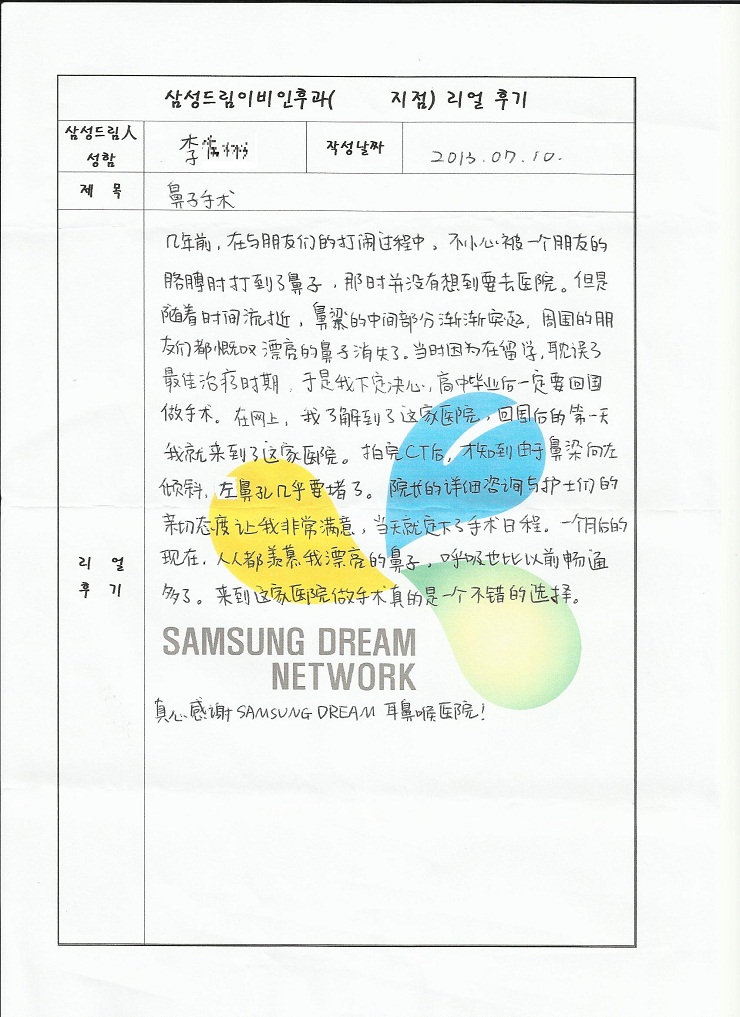 삼성드림이비인후과(       지점) 리얼 후기
삼성드림人
성함
李
작성날짜
2013.07.10.
제 목
鼻子手术
几年前，在与朋友们的打闹过程中，不小心被一个朋友的
胳膊肘打到了鼻子，那时并没有想到要去医院。但是
随着时间流逝，鼻梁的中间部分渐渐突起，周围的朋
友们都慨叹漂亮的鼻子消失了。当时因为在留学，耽误了
最佳治疗时期，于是我下定决心，高中毕业后一定要回国
做手术。在网上，我了解到了这家医院，回国后的第一天
我就来到了这家医院。拍完CT后，才知到由于鼻梁向左
倾斜，左鼻孔几乎要堵了。院长的详细咨询与护士们的
亲切态度让我非常满意，当天就定下了手术日程。一个月后的
现在，人人都羡慕我漂亮的鼻子，呼吸也比以前畅通
多了。来到这家医院做手术真的是一个不错的选择。
리 얼
후 기
SAMSUNG DREAM
NETWORK
真心感谢 SAMSUNG DREAM 耳鼻喉医院！